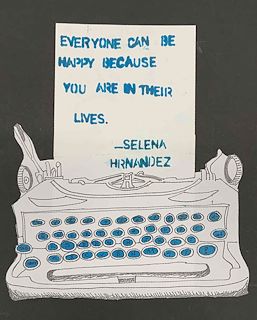 EVERYONE CAN BE
HAPPY BECAUSE
YOU ARE IN THEIR
LIVES.
—SELENA
HRNANDEZ